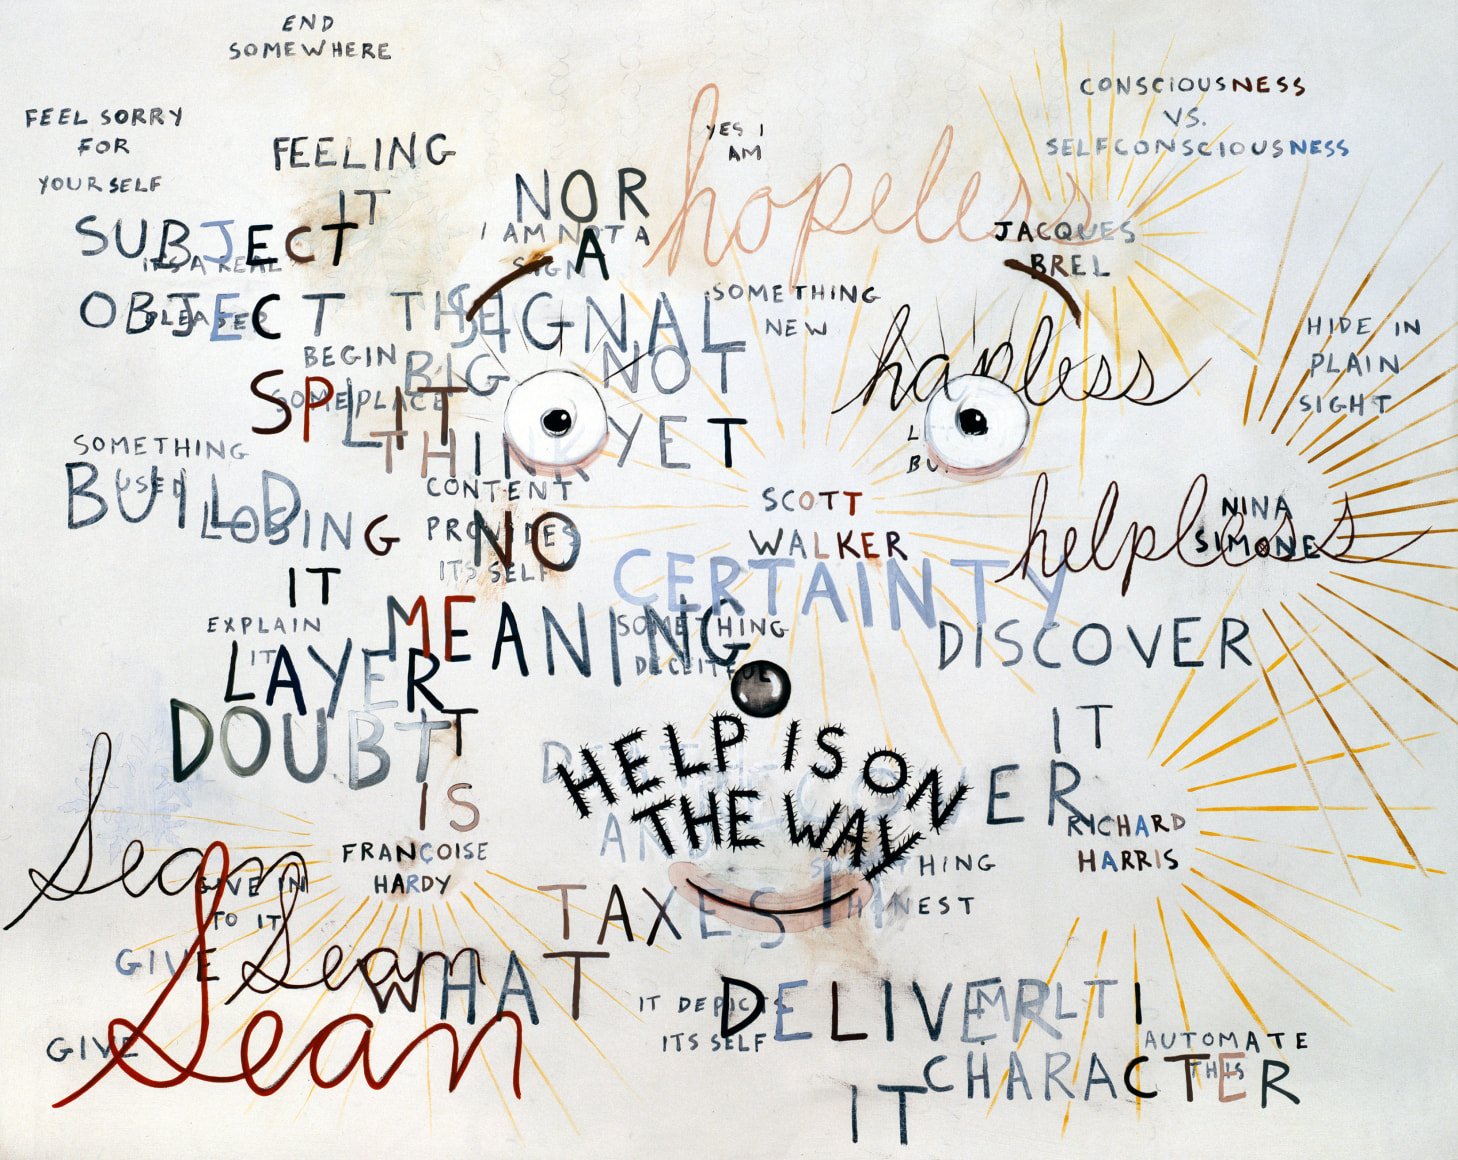 END
SOMEWHERE
CONSCIOUSNESS
VS.
SELFCONSCIOUSNESS
FEEL SORRY
FOR
YOURSELF
YES I
AM
FEELING
IT
hopeless
NOR
A
SIGNAL
I AM NOT A
SIGN
JACQUES
BREL
SUBJECT
OBJECT
IT'S A REAL
PLEASED
SOMETHING
NEW
THE
BIG
THINK
NOT
YET
hapless
HIDE IN
PLAIN
SIGHT
BEGIN
SOMEPLACE
SPLIT
SOMETHING
USED
BUILD
LOSING
IT
CONTENT
PROVIDES
ITS SELF
NO
CERTAINTY
SCOTT
WALKER
helpless
NINA
SIMONE
EXPLAIN
IT
MEANING
SOMETHING
DECEITFUL
DISCOVER
IT
LAYER
IT
DOUBT
IS
HELP IS ON
THE WAY
AND
ER
RICHARD
HARRIS
Sean
FRANÇOISE
HARDY
GIVE IN
TO IT
SOMETHING
HONEST
TAXES
IT
GIVE
Sean
WHAT
GIVE
Sean
IT DEPICTS
ITS SELF
DELIVER
IT
MULTI
CHARACTER
AUTOMATE
THIS